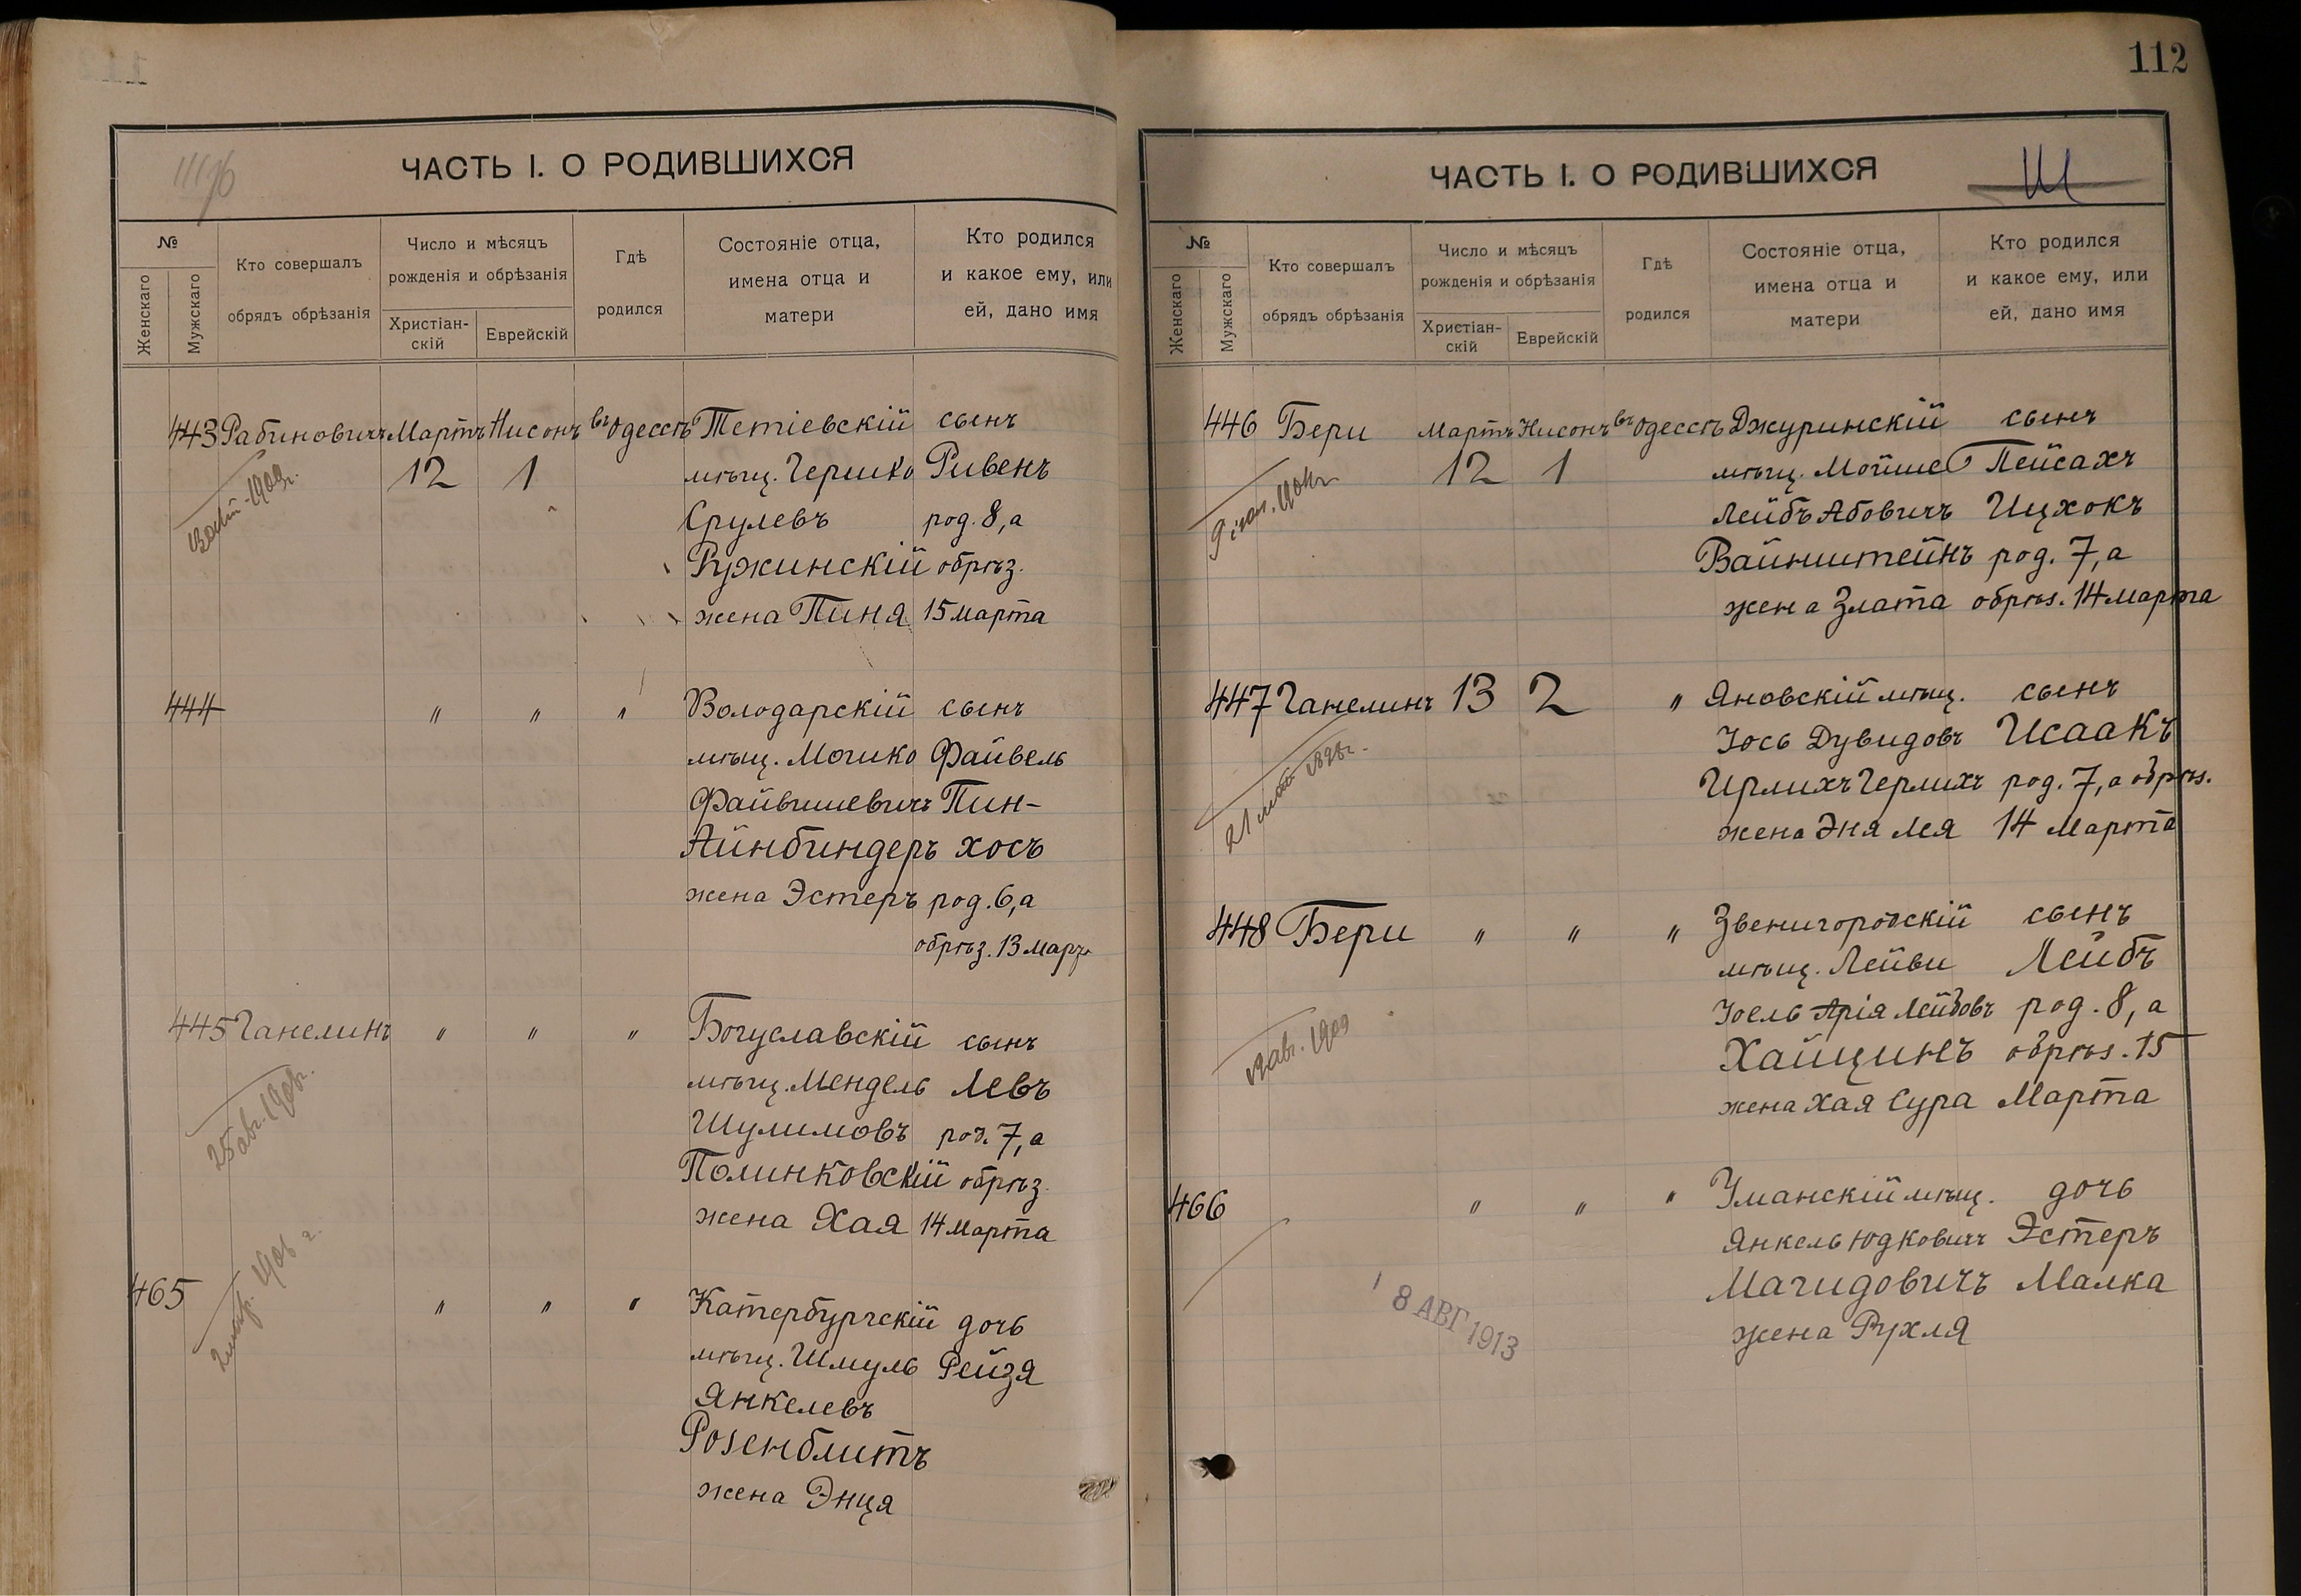 112
ЧАСТЬ I. О РОДИВШИХСЯ
№
Женскаго
Мужскаго
Кто совершалъ
обрядъ обрѣзанія
Число и мѣсяцъ
рожденія и обрѣзанія
Христіан-
скій
Еврейскій
Гдѣ
родился
Состояніе отца,
имена отца и
матери
Кто родился
и какое ему, или
ей, дано имя
443 Рабиновичъ Мартъ Нисонъ въ Одессѣ Тетіевскій сынъ
12 1 мѣщ. Гершко Рувенъ
Срулевъ род. 8, а
Ружинскій обрѣз.
жена Пиня 15 марта
444 " " " Володарскій сынъ
мѣщ. Мошко Файвель
Файвишевичъ Пин-
Айнбиндеръ хосъ
жена Эстеръ род. 6, а
обрѣз. 13 мар
445 Ганелинъ " " " Богуславскій сынъ
мѣщ. Мендель Левъ
Шулимовъ род. 7, а
25 авг. 1908г.
Полинковскій обрѣз.
жена Хая 14 марта
465 " " " Катербургскій дочь
мѣщ. Шмуль Рейзя
Янкелевъ
Розенблитъ
жена Энця
ЧАСТЬ I. О РОДИВШИХСЯ
№
Женскаго
Мужскаго
Кто совершалъ
обрядъ обрѣзанія
Число и мѣсяцъ
рожденія и обрѣзанія
Христіан-
скій
Еврейскій
Гдѣ
родился
Состояніе отца,
имена отца и
матери
Кто родился
и какое ему, или
ей, дано имя
446 Бери Мартъ Нисонъ въ Одессѣ Джуринскій сынъ
12 1 мѣщ. Мойше Пейсахъ
Лейбъ Абовичъ Ицхокъ
Вайнштейнъ род. 7, а
жена Злата обрѣз. 14 марта
447 Ганелинъ 13 2 " Яновскій мѣщ. сынъ
Іось Дувидовъ Исаакъ
Ирлихъ Герлихъ род. 7, а обрѣз.
жена Эня Лея 14 Марта
448 Бери " " " Звенигородскій сынъ
мѣщ. Лейви Лейбъ
Іоель Арія Лейбовъ род. 8, а
Хайцинъ обрѣз. 15
жена Хая Сура Марта
466 " " " Уманскій мѣщ. дочь
Янкель Юдковичъ Эстеръ
Магидовичъ Малка
жена Рухля
8 АВГ 1913